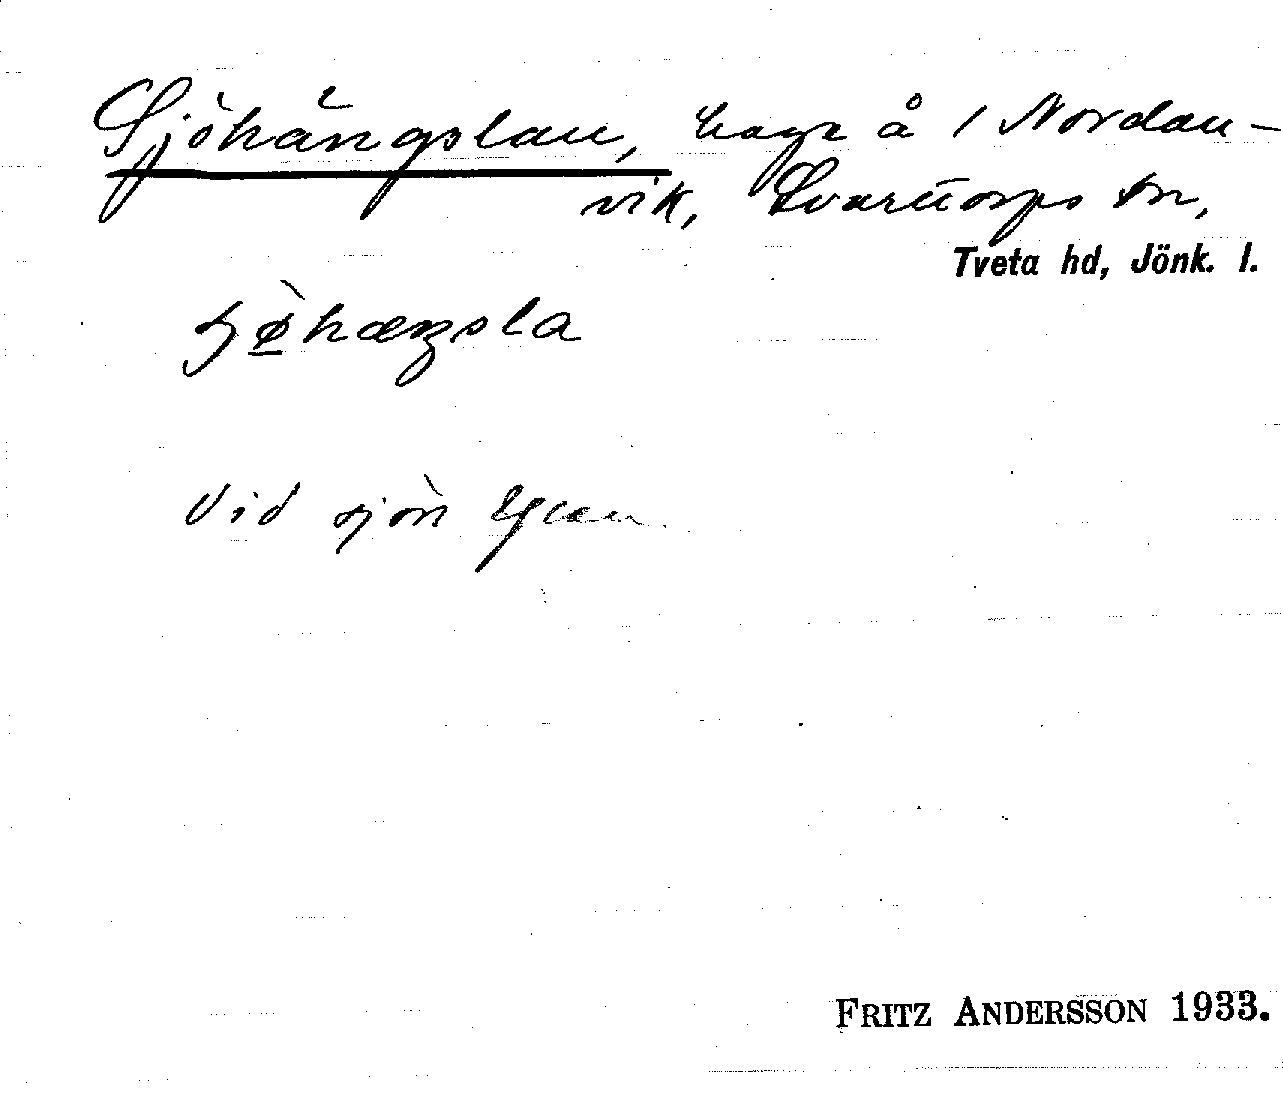 Sjöhängslan, hage å 1 Nordan-
vik, Svarttorps sn,
Tveta hd, Jönk. l.
Vid sjön
FRITZ ANDERSSON 1933.